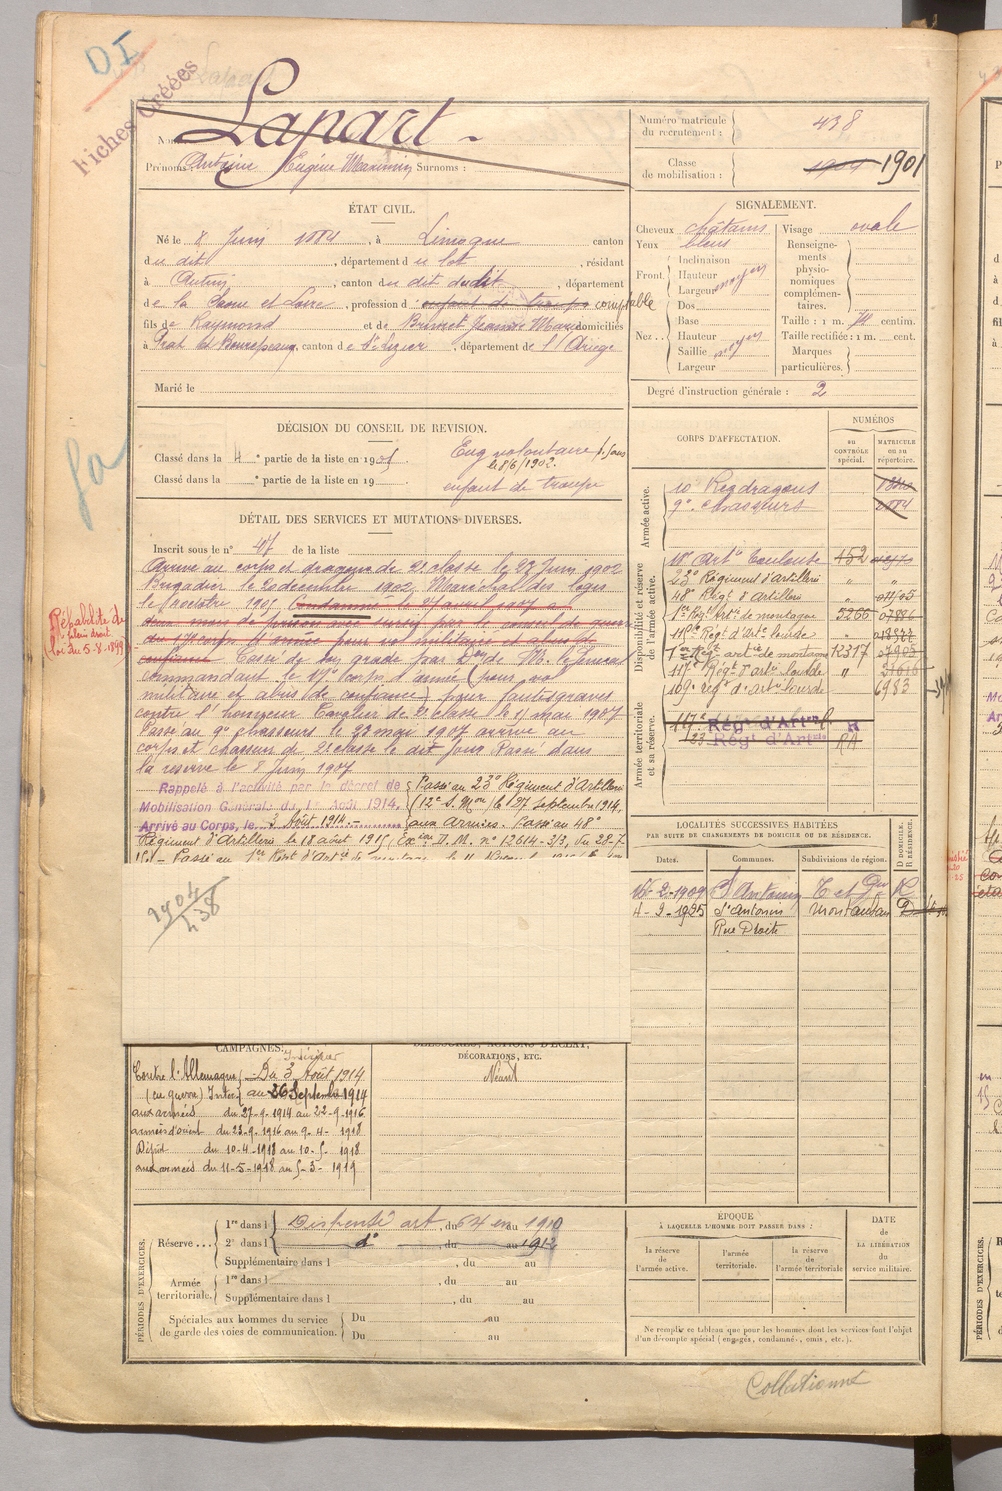 D I
Fiches Créées
Lapart
Nom :
Prénoms : Antoine Eugène Maximin Surnoms :
Numéro matricule du recrutement : 438
Classe de mobilisation : 1904 1901
ÉTAT CIVIL.
Né le 8 Juin 1884, à Limogne canton
du dit, département du lot, résidant
à Autun, canton du dit dudit, département
de la Saone et Loire, profession d enfant de troupe comptable
fils de Raymond et de Brunet Jeanne Marie domiciliés
à Prat et Bonrepeaux, canton de St Lizier, département de l'Ariège
Marié le
SIGNALEMENT.
Cheveux châtains
Yeux bleus
Front. Inclinaison
Hauteur moyen
Largeur
Nez.. Dos
Base
Hauteur
Saillie moyen
Largeur
Visage ovale
Renseignements physionomiques complémentaires.
Taille : 1 m. centim.
Taille rectifiée : 1 m. cent.
Marques particulières.
Degré d'instruction générale : 2
DÉCISION DU CONSEIL DE REVISION.
Classé dans la 4e partie de la liste en 1905
Classé dans la e partie de la liste en 19
Eng volontaire p. 5 ans
le 8/6/1902.
enfant de troupe
DÉTAIL DES SERVICES ET MUTATIONS DIVERSES.
Inscrit sous le n° 47 de la liste
Arrivé au corps et dragon de 2e classe le 27 Juin 1902
Brigadier le 20 décembre 1902 Maréchal des logis
le 1 octobre 1905 Condamné le 24 avril 1907 à
deux mois de prison avec sursis par le conseil de guerre
du 17e corps d'armée pour vol militaire et abus de
confiance Cassé de son grade par Don de M. le Général
commandant le 17e corps d'armée (pour vol
militaire et abus de confiance) pour fautes graves
contre l'honneur Cavalier de 2e classe le 15 mai 1907
Passé au 9e chasseurs le 22 mai 1907 arrivé au
corps et chasseur de 2e classe le dit jour Passé dans
la réserve le 8 Juin 1907
Rappelé à l'activité par le décret de
Mobilisation Générale du 1er Août 1914.
Arrivé au Corps, le 3 Août 1914.
Passé au 23e Régiment d'Artillerie
27 septembre 1914,
aux Armées. Passé au 48e
Régiment d'Artillerie le 18 août 1915
Réhabilité de
plein droit
loi du 5-8-1899
CORPS D'AFFECTATION.
NUMÉROS
au CONTRÔLE spécial.
MATRICULE ou au répertoire.
Armée active.
10e Reg dragons
9e chasseurs
Disponibilité et réserve de l'armée active.
18e Arte Toulouse 452
23e Régiment d'Artillerie "
48e Régt d'Artillerie " 01105
1er Régt Artie de montagne 5266 07886
116e Régt d'Art lourde "
1er Régt art de montagne 12317 07905
117e Régt d'Art lourde " 21616
109e régt d'art lourde 6983
Armée territoriale et sa réserve.
117e Régt d'Artrie R
123 Régt d'Artrie RA
LOCALITÉS SUCCESSIVES HABITÉES
PAR SUITE DE CHANGEMENTS DE DOMICILE OU DE RÉSIDENCE.
Dates. Communes. Subdivisions de région. D DOMICILE. R RÉSIDENCE.
16-2-1909 St Antonin T et Gne R
4-2-1925 St Antonin Montauban D
Rue Droite
1904
438
CAMPAGNES.
Intérieur
Contre l'Allemagne Du 3 Août 1914
(en guerre) Intér. au 26 Septembre 1914
aux armées du 27-9-1914 au 22-9-1916
armées d'orient du 23-9-1916 au 9-4-1918
Dépôt du 10-4-1918 au 10-5-1918
aux armées du 11-5-1918 au 5-3-1919
BLESSURES, ACTIONS D'ÉCLAT,
DÉCORATIONS, ETC.
Néant
PÉRIODES D'EXERCICES.
Réserve... 1re dans l Dispensé art, du 64 en au 1910
2e dans l do du au 1912
Supplémentaire dans l , du au
Armée territoriale. 1re dans l , du au
Supplémentaire dans l , du au
Spéciales aux hommes du service de garde des voies de communication. Du au
Du au
ÉPOQUE
À LAQUELLE L'HOMME DOIT PASSER DANS :
la réserve de l'armée active.
l'armée territoriale.
la réserve de l'armée territoriale
DATE de LA LIBÉRATION du service militaire.
Ne remplir ce tableau que pour les hommes dont les services font l'objet
d'un décompte spécial (engagés, condamné, omis, etc.).
Collationné